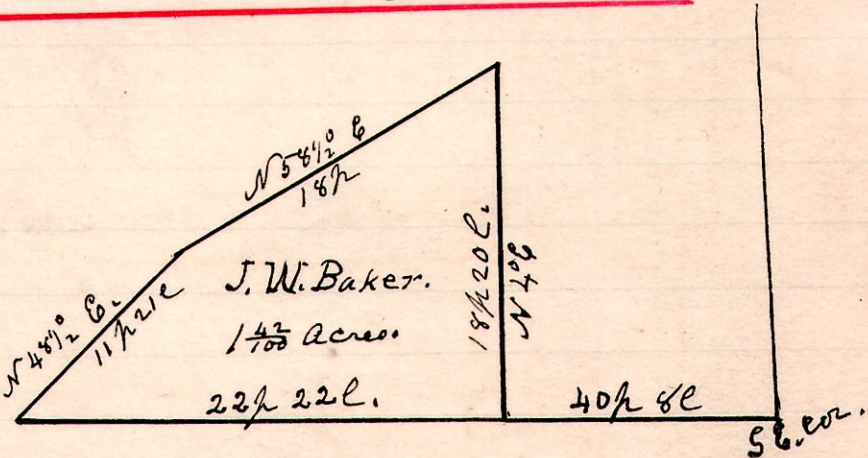 N 58½° E
18p
N 48½° E.
11p 21l
J. W. Baker.
1 42/100 Acres.
18p 20l.
N 4° E
22p 22l.
40p 8l
S E. cor.